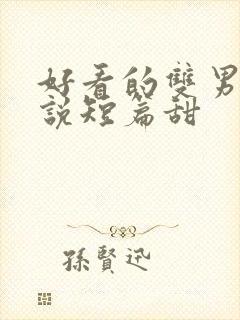 好看的雙男
說短篇甜
孫賢迅